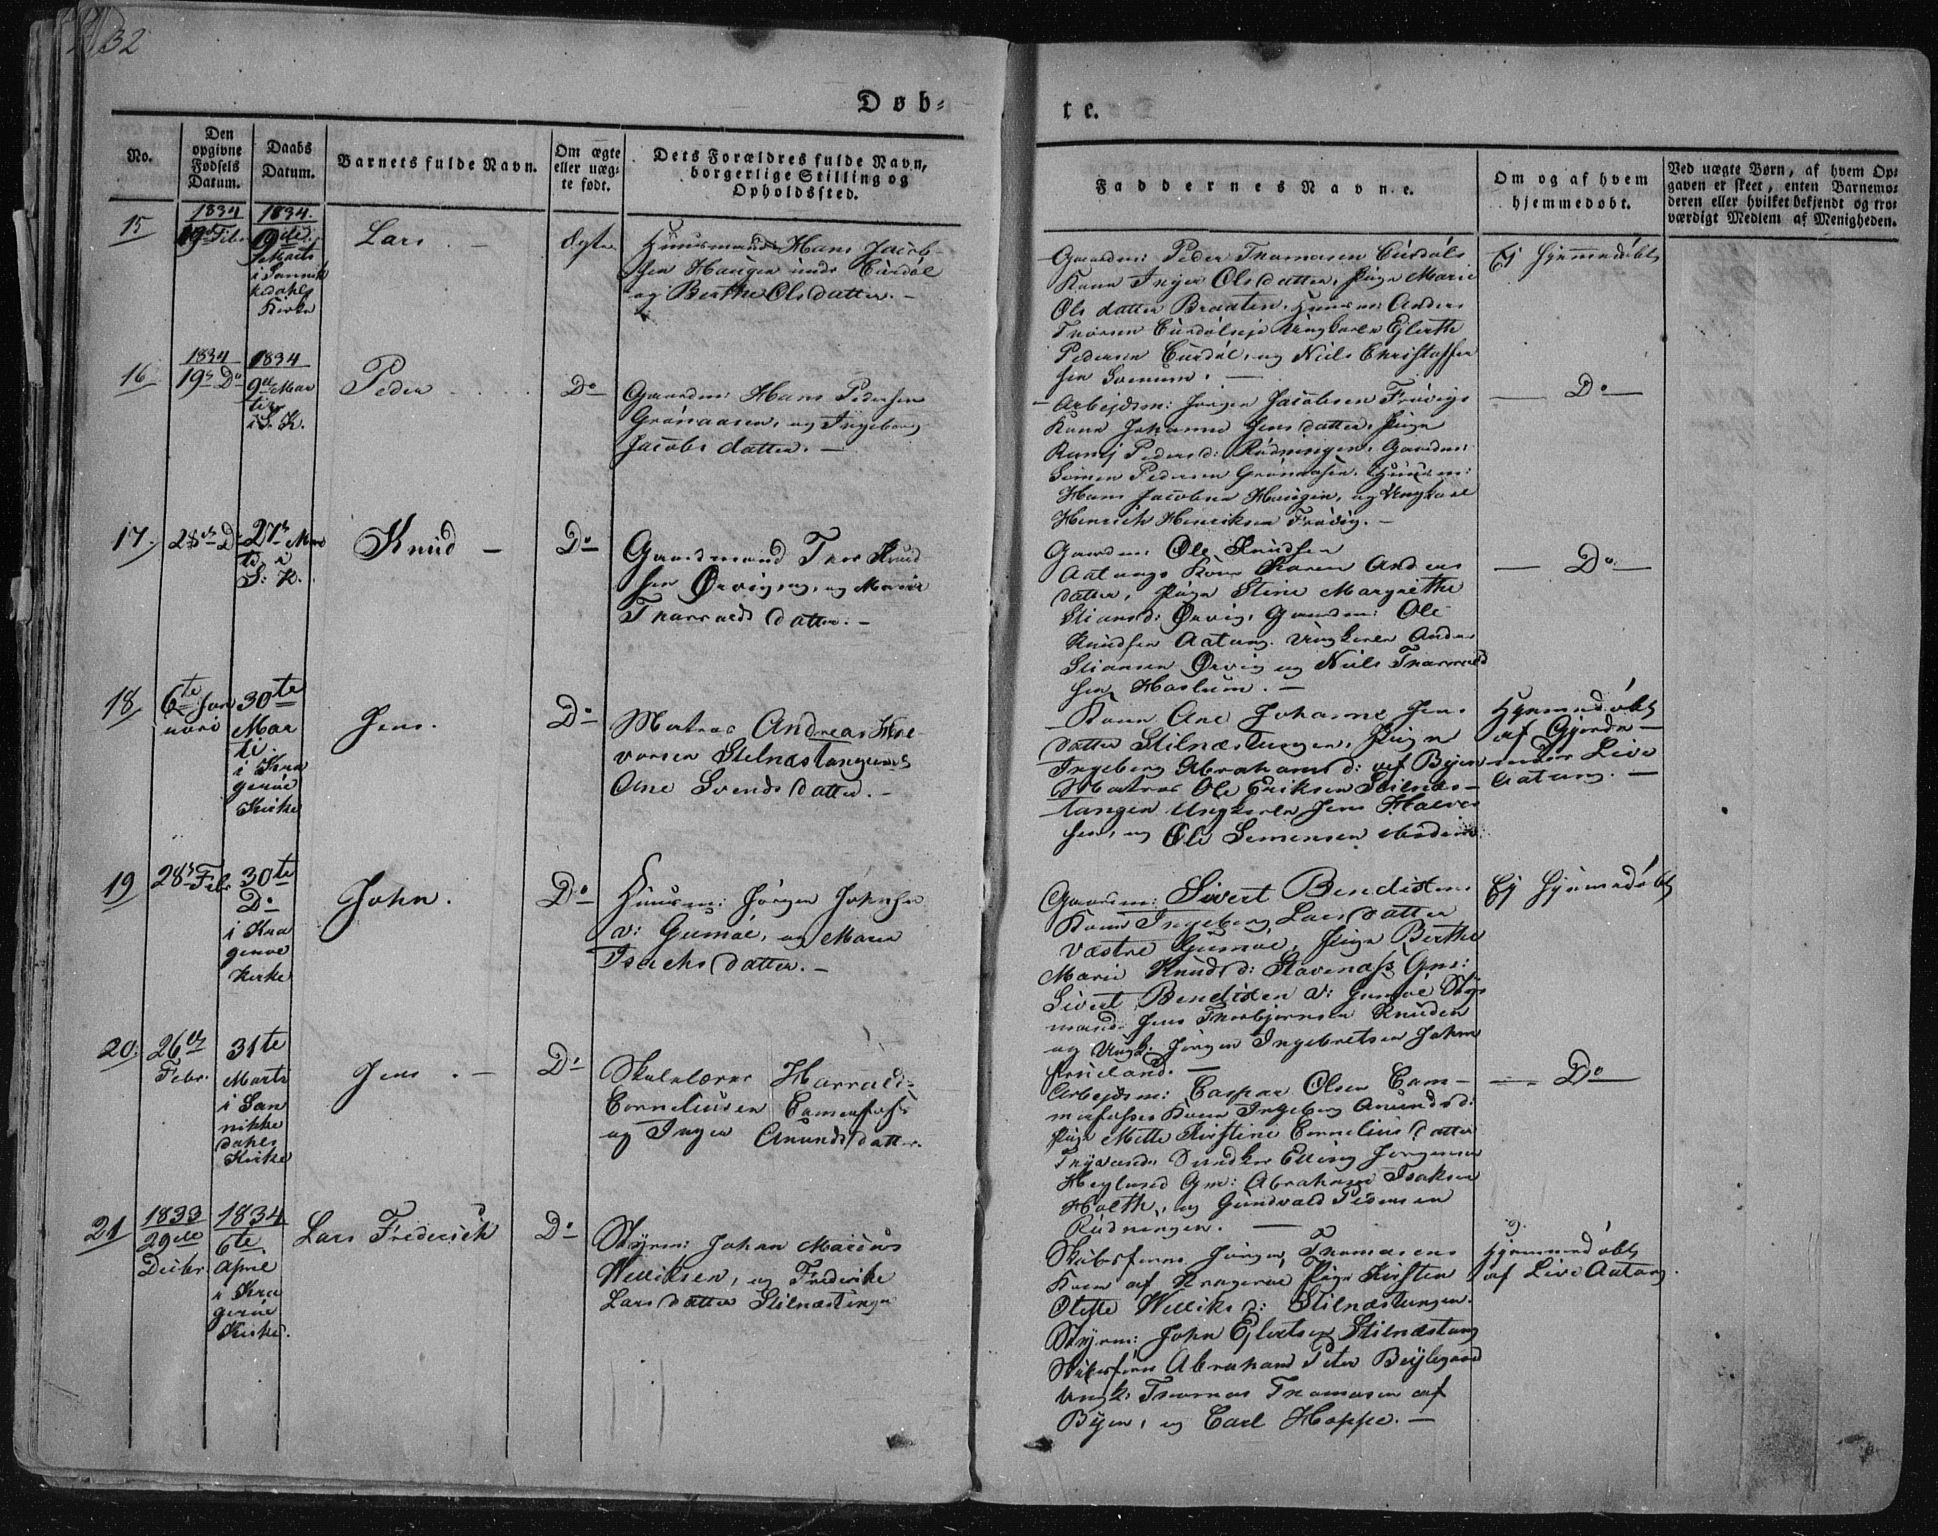 32
Døb-
te.
No.
Den opgivne Fødsels Datum.
Daabs Datum.
Barnets fulde Navn.
Om ægte eller uægte født.
Dets Forældres fulde Navn, borgerlige Stilling og Opholdssted.
Faddernes Navne.
Om og af hvem hjemmedøbt.
Ved uægte Børn, af hvem Opgaven er skeet, enten Barnemoderen eller hvilket bekjendt og troværdigt Medlem af Menigheden.
15
1834
19de Febr
1834.
9de
Marts
i Sannikedahls
Kirke
Lars
Ægte
Huusmand Hans Jacob-
sen Haugen under
og Berthe Olsdatter.
Gaardm: Peder Thomasen
Kone Inger Olsdatter, Pige Marie
Olsdatter Braaten, Huusm: Anders
Pedersen og Niels Christoffer
sen
Ej Hjemmedøbt
16
1834
19de Do
1834
9de Mar
tii
i S. K.
Peder
Do
Gaardm: Hans Pedersen
Grønaasen, og Ingeborg
Jacobsdatter.
Arbejdsm: Jørgen Jacobsen Frøvigs
Kone Johanne Jensdatter, Pige
Pedersd: Rødningen, Gaardm:
Simen Pedersen Grønaasen, Huusm:
Hans Jacobsen Haugen, og Ungkarl
Henrich Henriksen Frøvig.
Do
17.
28de Do
27de Mar
tii i
S: K.
Knud
Do
Gaardmand Thor Knud
sen Ørvig, og Maria
Tharvaldsdatter.
Gaardm: Ole Knudsen
Aatangs Kone Karen Anders
datter, Pige Stine Margrethe
Stiansd: Ørvig, Gaardm: Ole
Knudsen Aatang. Ungkarle Anders
Stiansen Ørvig og Niels Tharvald
sen Haslum.
Do
18
6te Jan
uari
30te
Mar
tii
i Kra
gerøe
Kirke
Jens.
Do
Matros Andreas Hal-
vorsen Stilnæstangen og
Ane Svendsdatter.
Kone Ane Johanne Jens
datter Stilnæstangen, Pige
Ingeborg Abrahamsd: af Byen
Matros Ole Eriksen Stilnæs-
tangen Ungkarle Jens Halvor
sen, og Ole Simensen
Hjemmedøbt
af
Live
Aatang.
19
28de Febr
30te
Do
i Kra
gerøe
Kirke
John.
Do
Huusm: Jørgen Johnsen
v: Gumøe, og Maren
Isachsdatter.
Gaardm: Sivert Bendixens
Kone Ingeborg Larsdatter
Væstre Gumøe, Pige Berthe
Marie Knudsd: Stavenæss Gm:
Sivert Bendixen v: Gumøe
mand Jens Thorbjørnsen
og Ungk: Jørgen Ingebretsen
Ej Hjemmedøbt
20.
26de
Febr.
31te
Marts
i San
nikke
dahls
Kirke
Jens.
Do
Skolelærer Harrald
Corneliusen Camerfoss
og Inger Anundsdatter.
Arbejdsm: Caspar Olsen Cam-
merfosses Kone Ingeborg Anundsd:
Pige Mette Kirstine Corneliusdatter
Elling Jørgensen
Gm: Abraham Isaksen
Holth, og Gundvald Pedersen
Rødningen.
Do
21
1833
29de
Decbr.
1834
6te
April
i Kra
gerøe
Kirke.
Lars Frederich
Do
Styrm: Johan Marius
Williksen, og Frederike
Larsdatter Stilnæstangen
Skibsførers Jørgen Thomasens
Kone af Kragerøe, Pige Kirsten
Olette Williksd: Stilnæstangen.
Styrm: John Ejlertsen Stilnæstang
Skibsfører Abraham Peter
Ungk: Thomas Thomasen af
Byen, og Carl Hoppe.
Hjemmedøbt
af Live Aatang.